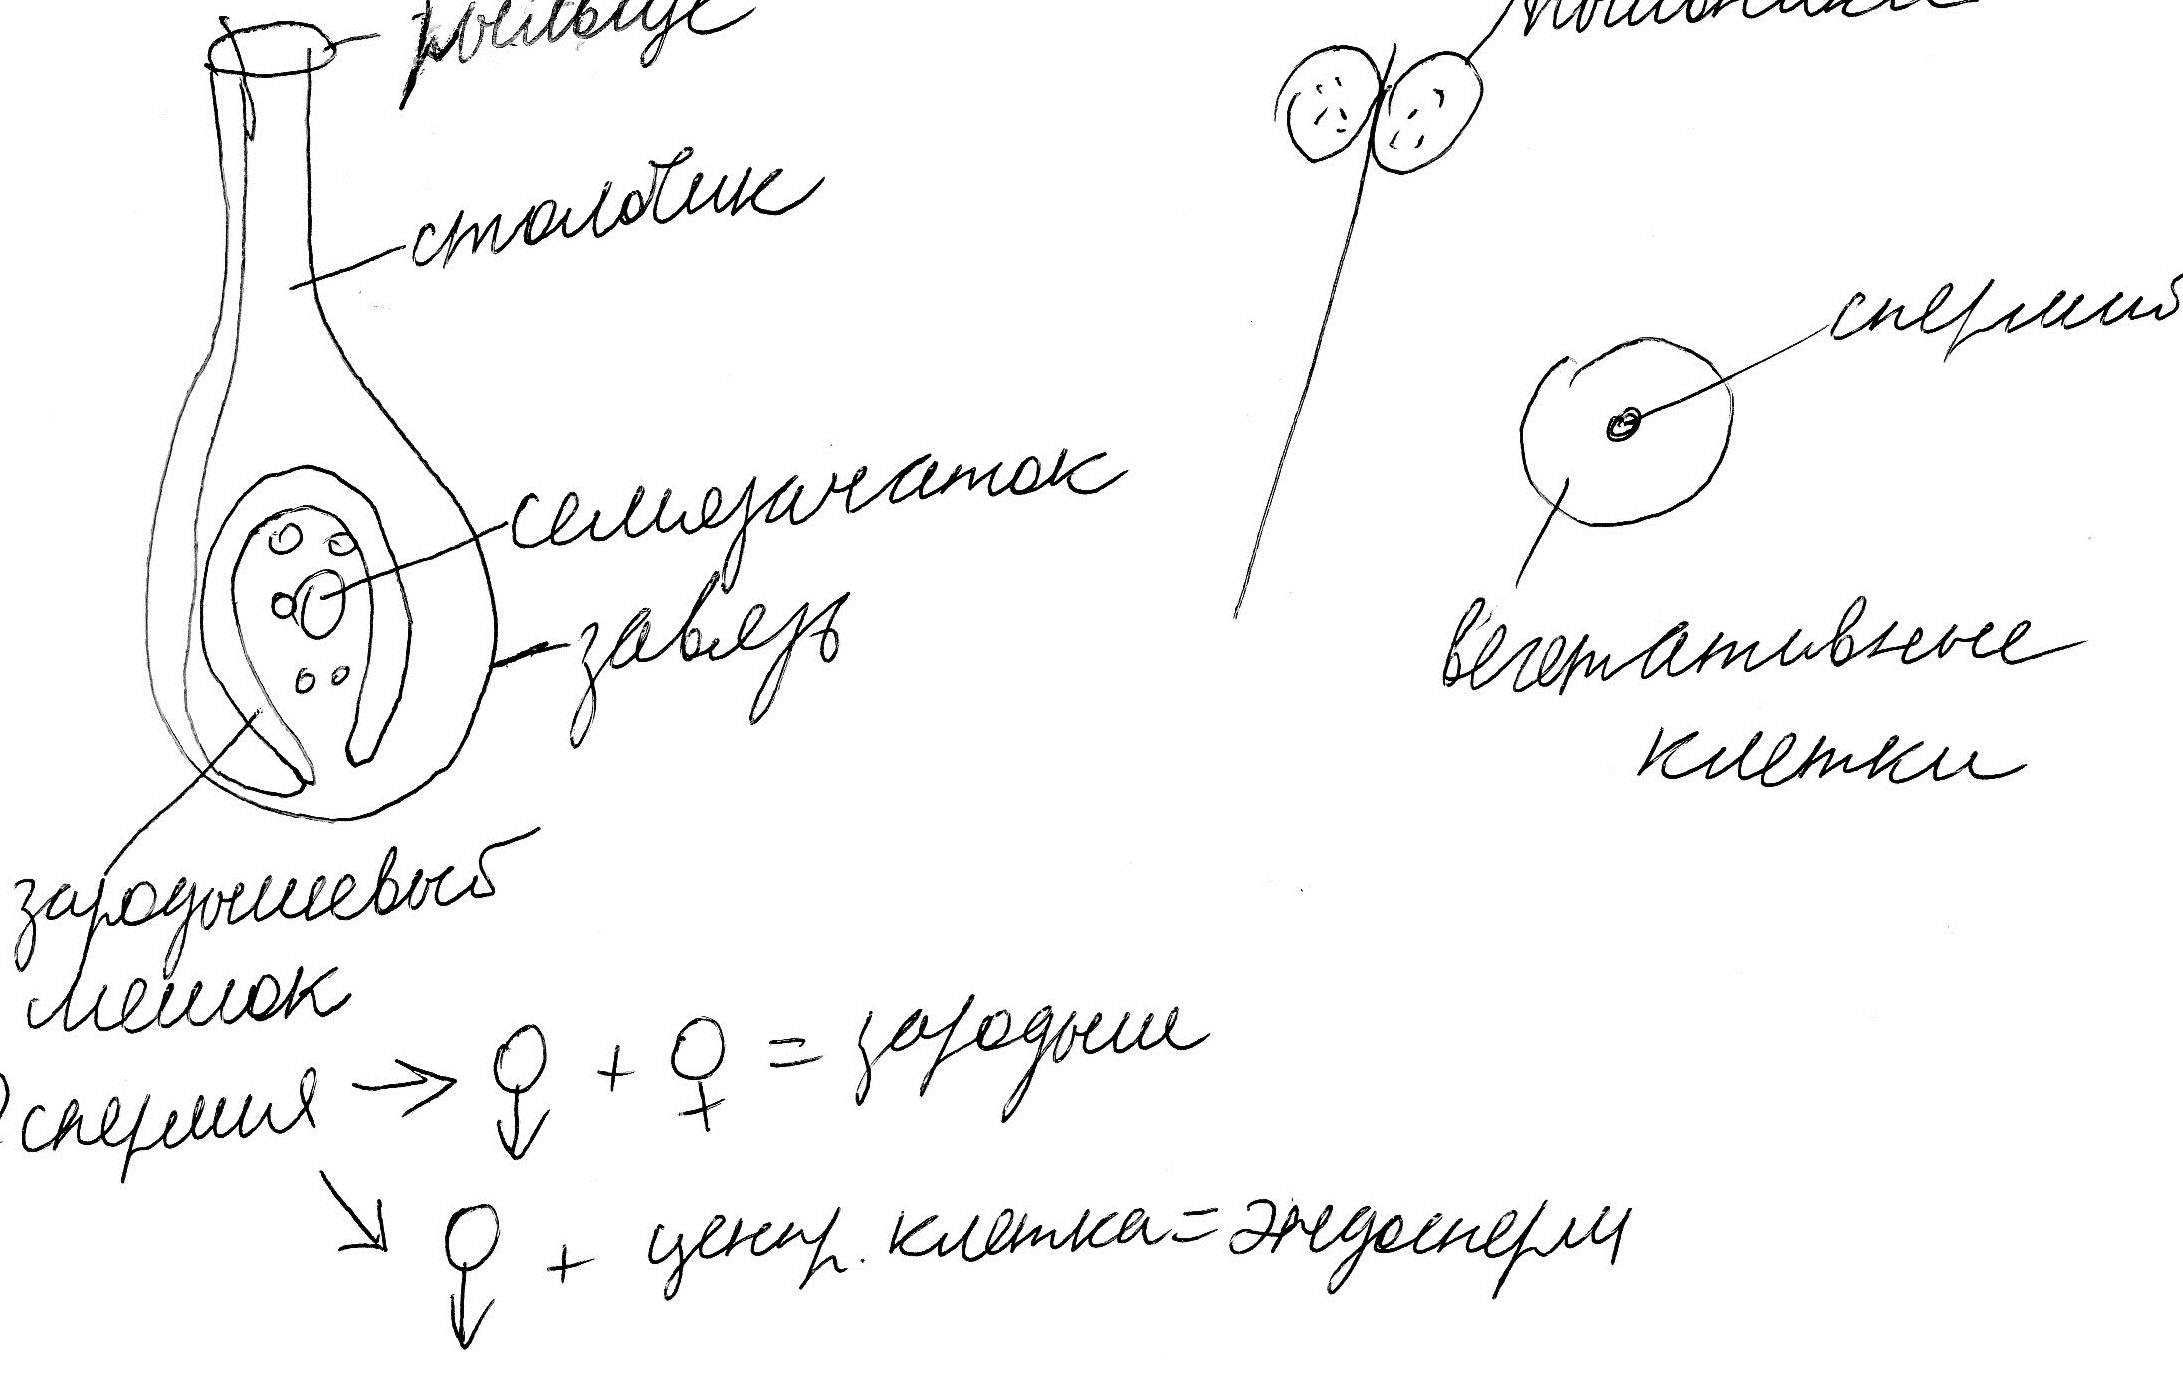 рыльце
пыльники
столбик
спермий
семязачаток
завязь
вегетативные
клетки
зародышевый
мешок
2 спермия → ♂ + ♀ = зародыш
↘ ♂ + центр. клетка = эндосперм